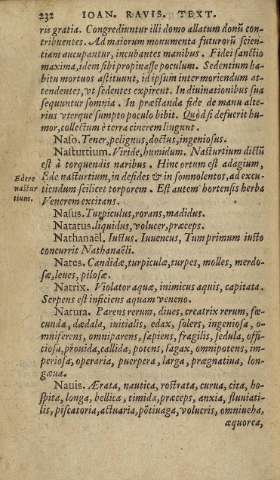 232 IOAN. RAVIS. TEXT.
ris gratia. Congrediuntur illi domo allatum donū con-
tribuentes. Ad maiorum monumenta futurorū scien-
tiam aucupantur, incubantes manibus. Fidei sanctio
maxima, idem sibi propinasse poculum. Sedentium ha-
bitu mortuos astituunt, id ipsum inter moriendum at-
tendentes, vt sedentes expirent. In diuinationibus sua
sequuntur somnia. In præstanda fide de manu alte-
rius vterque sumpto poculo bibit. Quòd si defuerit hu-
mor, collectum è terra cinerem lingunt.
Naso. Tener, pelignus, doctus, ingeniosus.
Nasturtium. Viride, humidum. Nasturtium dictū
est à torquendis naribus. Hinc ortum est adagium,
Ede nasturtium, in desides & in somnolentos, ad excu-
tiendum scilicet torporem. Est autem hortensis herba
Venerem excitans.
Ede re
nastur
tium.
Nasus. Turpiculus, rorans, madidus.
Natatus. liquidus, volucer, præceps.
Nathanaël. Iustus. Iuuencus, Tum primum iusto
concurrit Nathanaëli.
Nates. Candidæ, turpiculæ, turpes, molles, merdo-
sæ, leues, pilosæ.
Natrix. Violator aquæ, inimicus aquis, capitata.
Serpens est inficiens aquam veneno.
Natura. Parens rerum, diues, creatrix rerum, fœ-
cunda, dædala, initialis, edax, solers, ingeniosa, o-
mniferens, omniparens, sapiens, fragilis, sedula, offi-
ciosa, prouida, callida, potens, sagax, omnipotens, im-
periosa, operaria, puerpera, larga, prægnatiua, lon-
gæua.
Nauis. Ærata, nautica, rostrata, curua, cita, ho-
spita, longa, bellica, timida, præceps, anxia, fluuiati-
lis, piscatoria, actuaria, pōtiuaga, volucris, omniueha,
aquorea,